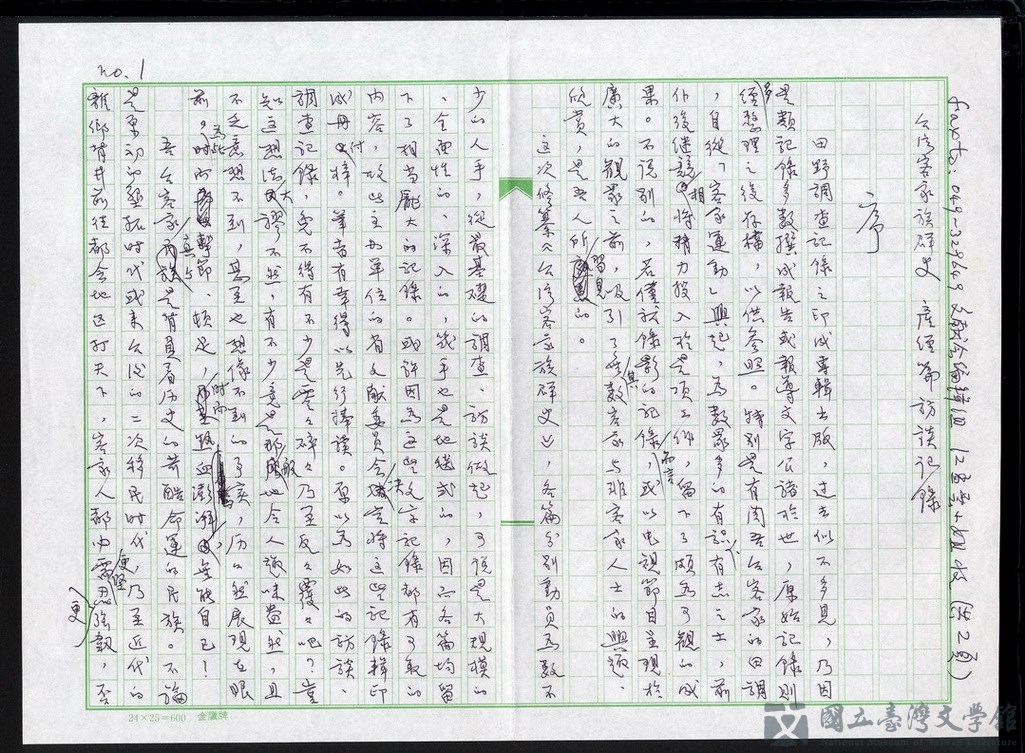 fax to: 049-329649 文獻會編輯組 江、小姐收 (共2頁)
台灣客家族群史 產經篇訪談記錄
序
田野調查記錄之印成專輯出版,過去似不多見,乃因
是類記錄多數撰成報告或報導文字公諸於世,原始記錄則
經整理之後存檔,以供參照。特別是有關吾台客家的田調
,自從「客家運動」興起,為數眾多的有識、有志之士,前
仆後繼競相將精力投入於是項工作,留下了頗為可觀的成
果。不說別的,若僅就錄影的記錄而言,或以電視節目呈現於
廣大的觀眾之前,吸引了無數客家與非客家人士的興趣、
欣賞,是吾人所習見的。
這次修纂《台灣客家族群史》,各篇分別動員為數不
少的人手,從最基礎的調查、訪談做起,可說是大規模的
、全面性的、深入的,幾乎也是地毯式的,因而各篇均留
下了相當龐大的記錄。或許因為這些文字記錄都有可取的
內容,故此主办單位的省文献委員会決定將这些記錄輯印
成冊付梓。筆者有幸得以先行捧讀。原以為如此的訪談、
調查記錄,免不得有不少是零零碎碎乃至反反覆覆吧?豈
知這想法大謬不然,有不少竟是那般地令人趣味盎然,且
不乏意想不到,甚至也想像不到的事實,历历然展現在眼
前,為此時而擊節、頓足,時而熱血澎湃,無能自已!
吾台客家真是背負着历史的苛酷命運的民族。不論
是原初的墾拓時代或来台後的二次移民時代,乃至近代的
離鄉背井前往都会地区打天下,客家人都必需更堅忍強韌,否
更
no. 1
24×25=600 金鷹牌
國立臺灣文學館